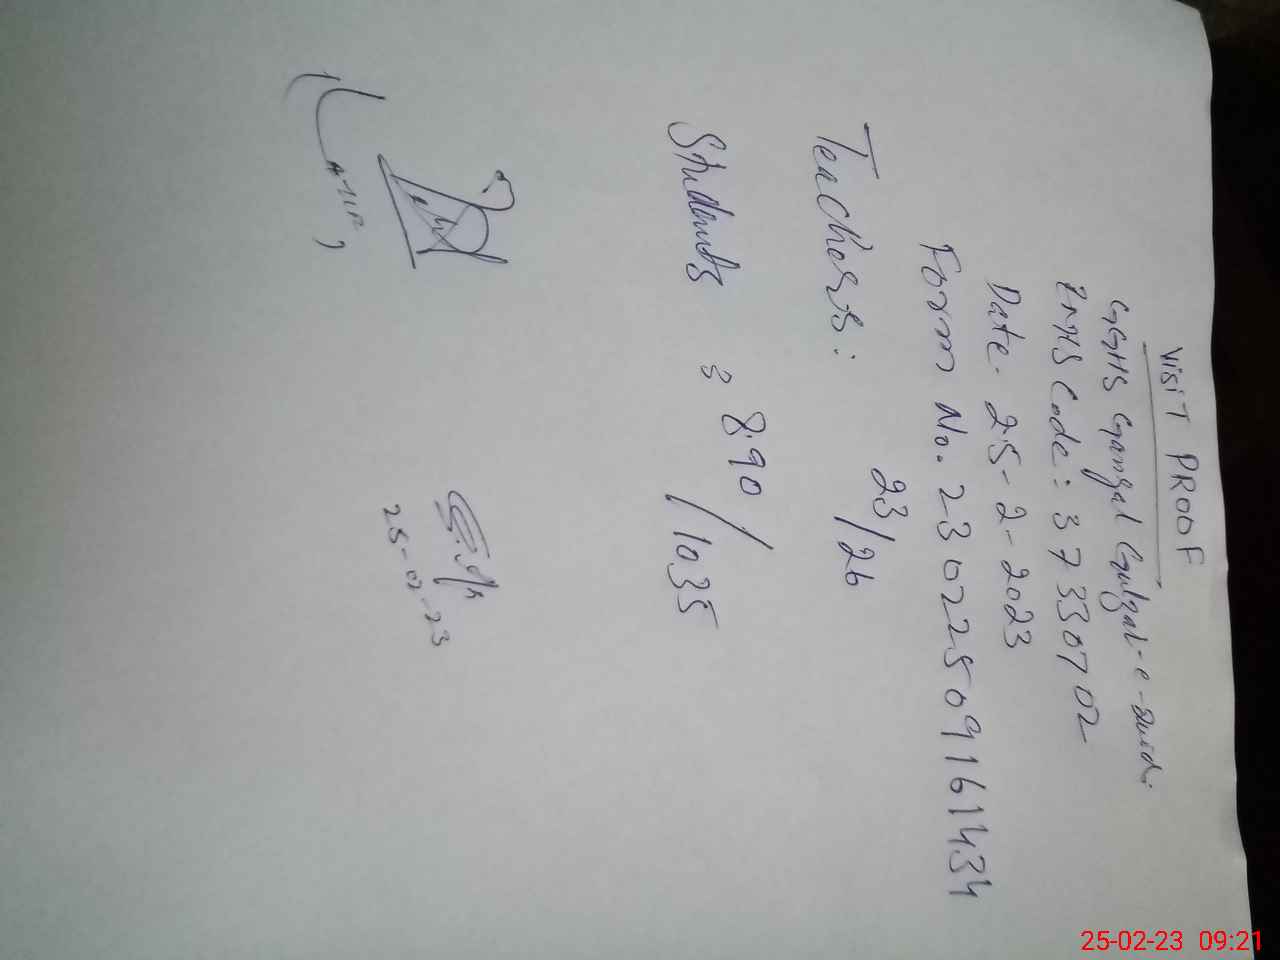 VISIT PROOF
GGHS Gangal Gulzal-e-Quid.
EMIS Code: 37330702
Date. 25-2-2023
Form No. 23022509161434
Teachers: 23/26
Students : 890/1035
25-02-23
25-02-23 09:21